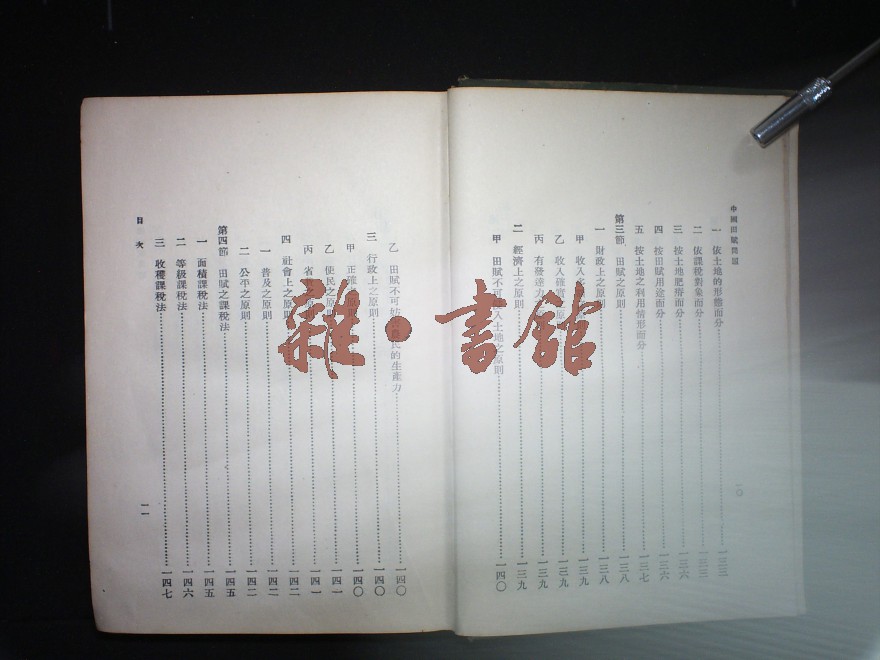 中國田賦問題
一 依土地的形態而分……一三三
二 依課稅對象而分……一三三
三 按土地肥瘠而分……一三六
四 按田賦用途而分……一三六
五 按土地之利用情形而分……一三七
第三節 田賦之原則……一三八
一 財政上之原則……一三八
甲 收入……一三九
乙 收入確……原……一三九
丙 有發達力……一三九
二 經濟上之原則……一三九
甲 田賦不可……入土地之原則……一四〇
一〇
乙 田賦不可妨……民的生產力……一四〇
三 行政上之原則……一四〇
甲 正確……原則……一四〇
乙 便民之原則……一四一
丙 省……原……一四一
四 社會上之原則……一四二
一 普及之原則……一四二
二 公平之原則……一四二
第四節 田賦之課稅法……一四五
一 面積課稅法……一四五
二 等級課稅法……一四六
三 收穫課稅法……一四七
目次
一一
雜·書館